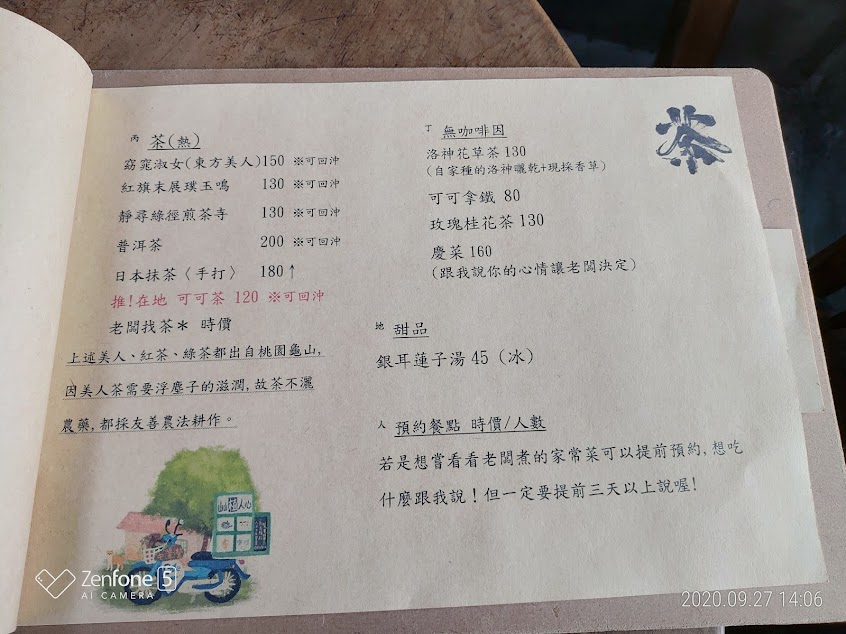 丙 茶(熱)
窈窕淑女(東方美人)150 ※可回沖
紅旗末展璞玉鳴 130 ※可回沖
靜尋綠徑煎茶寺 130 ※可回沖
普洱茶 200 ※可回沖
日本抹茶〈手打〉 180↑
推!在地 可可茶 120 ※可回沖
老闆找茶* 時價
上述美人、紅茶、綠茶都出自桃園龜山,
因美人茶需要浮塵子的滋潤,故茶不灑
農藥,都採友善農法耕作。
丁 無咖啡因
洛神花草茶 130
(自家種的洛神曬乾+現採香草)
可可拿鐵 80
玫瑰桂花茶 130
慶菜 160
(跟我說你的心情讓老闆決定)
地 甜品
銀耳蓮子湯 45 (冰)
人 預約餐點 時價/人數
若是想嘗看看老闆煮的家常菜可以提前預約,想吃
什麼跟我說!但一定要提前三天以上說喔!
茶
Zenfone 5
AI CAMERA
2020.09.27 14:06